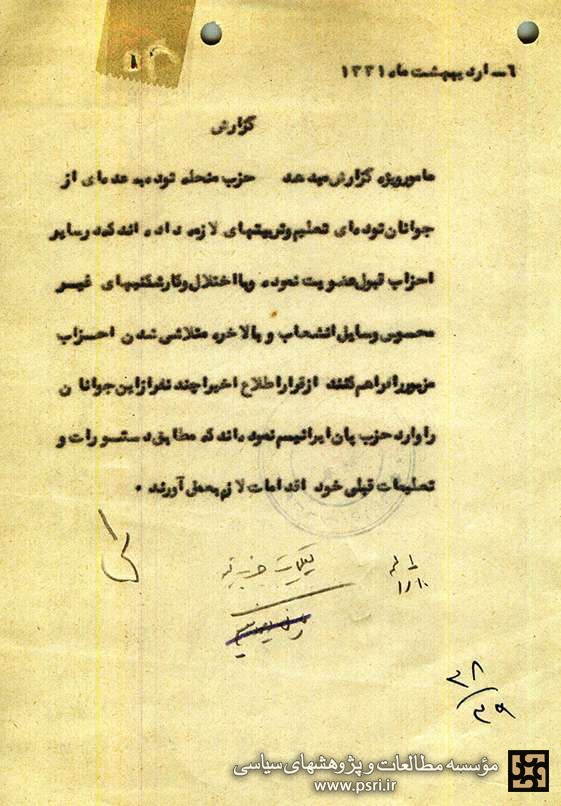 ٦ـ اردیبهشت ماه ۱۳۳۱
گزارش
مامور ویژه گزارش میدهد حزب منحله توده بعده‌ای از
جوانان توده‌ای تعلیم و تربیتهای لازمه داده اند که در سایر
احزاب قبول عضویت نموده و با اختلال و کارشکنیهای غیر
محسوس وسایل انشعاب و بالاخره متلاشی شدن احزاب
مزبور را فراهم کنند از قرار اطلاع اخیرا چند نفر از این جوانان
را وارد حزب پان ایرانیسم نموده‌اند که مطابق دستورات و
تعلیمات قبلی خود اقدامات لازم بعمل آورند .
۲۸
۲۹
مؤسسه مطالعات و پژوهشهای سیاسی
www.psri.ir